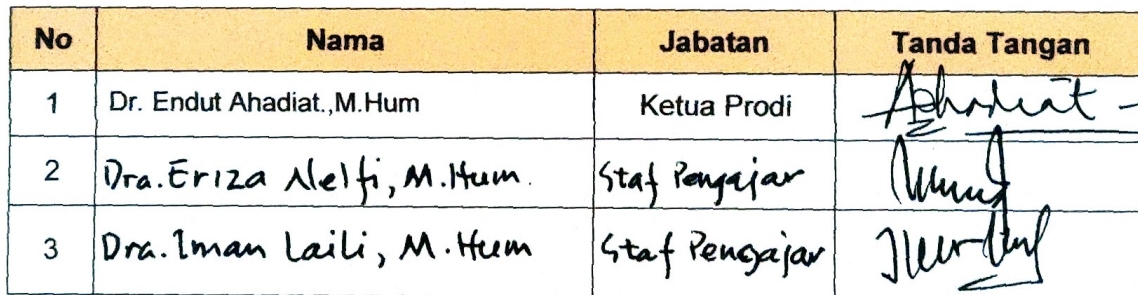 No Nama Jabatan Tanda Tangan
1 Dr. Endut Ahadiat.,M.Hum Ketua Prodi Ahadiat
2 Dra. Eriza Nelfi, M.Hum. Staf Pengajar
3 Dra. Iman Laili, M.Hum Staf Pengajar